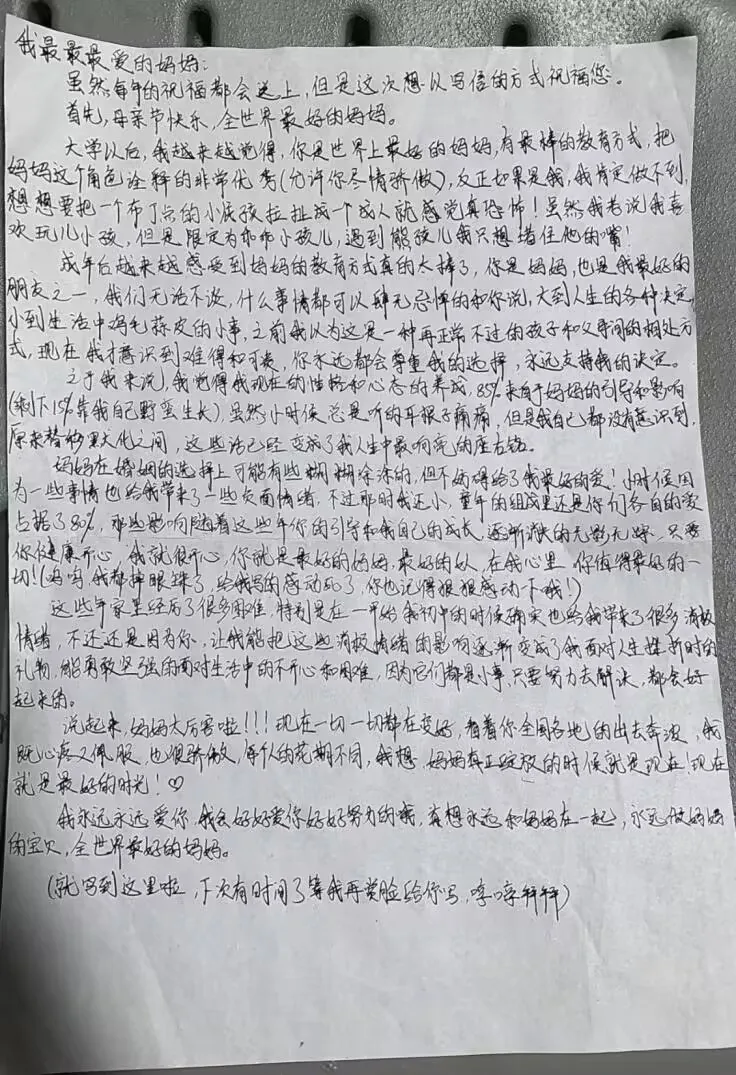 我最最最爱的妈妈：
虽然每年的祝福都会送上，但是这次想以写信的方式祝福您。
首先，母亲节快乐，全世界最好的妈妈。
大学以后，我越来越觉得，你是世界上最好的妈妈，有最棒的教育方式，把
妈妈这个角色诠释的非常优秀(允许你尽情骄傲)，反正如果是我，我肯定做不到，
想想要把一个布丁点的小屁孩拉扯成一个成人就感觉真恐怖！虽然我老说我喜
欢玩儿小孩，但是限定为乖乖小孩儿，遇到熊孩儿我只想堵住他的嘴！
成年后越来越感受到妈妈的教育方式真的太棒了，你是妈妈，也是我最好的
朋友之一，我们无话不谈，什么事情都可以肆无忌惮的和你说，大到人生的各种决定，
小到生活中鸡毛蒜皮的小事，之前我以为这是一种再正常不过的孩子和父母间的相处方
式，现在我才意识到难得和可贵，你永远都会尊重我的选择，永远支持我的决定。
之于我来说，我觉得我现在的性格和心态的养成，85%来自于妈妈的引导和影响
(剩下15%靠我自己野蛮生长)，虽然小时候总是听的耳根子痛痛，但是我自己都没有意识到，
原来潜移默化之间，这些话已经变成了我人生中最响亮的座右铭。
妈妈在婚姻的选择上可能有些糊糊涂涂的，但不妨碍给了我最好的爱！小时候因
为一些事情也给我带来了一些负面情绪，不过那时我还小，童年的组成里还是你们各自的爱
占据了80%，那些影响随着这些年你的引导和我自己的成长，逐渐消失的无影无踪，只要
你健康开心，我就很开心，你就是最好的妈妈，最好的人，在我心里，你值得最好的一
切！(呜呜我都掉眼珠了，给我写的感动死了，你也记得狠狠感动一下哦！)
这些年家里经历了很多困难，特别是在一开始我初中的时候确实也给我带来了很多消极
情绪，不还还是因为你，让我能把这些消极情绪的影响逐渐变成了我面对人生挫折时的
礼物，能勇敢坚强的面对生活中的不开心和困难，因为它们都是小事，只要努力去解决，都会好
起来的。
说起来，妈妈太厉害啦！！！现在一切一切都在变好，看着你全国各地的出去奔波，我
既心疼又佩服，也很骄傲，每个人的花期不同，我想，妈妈真正绽放的时候就是现在！现在
就是最好的时光！♡
我永远永远爱你，我会好好爱你好好努力的哦，真想永远和妈妈在一起，永远做妈妈
的宝贝，全世界最好的妈妈。
(就写到这里啦，下次有时间了等我再赏脸给你写，哼哼拜拜)